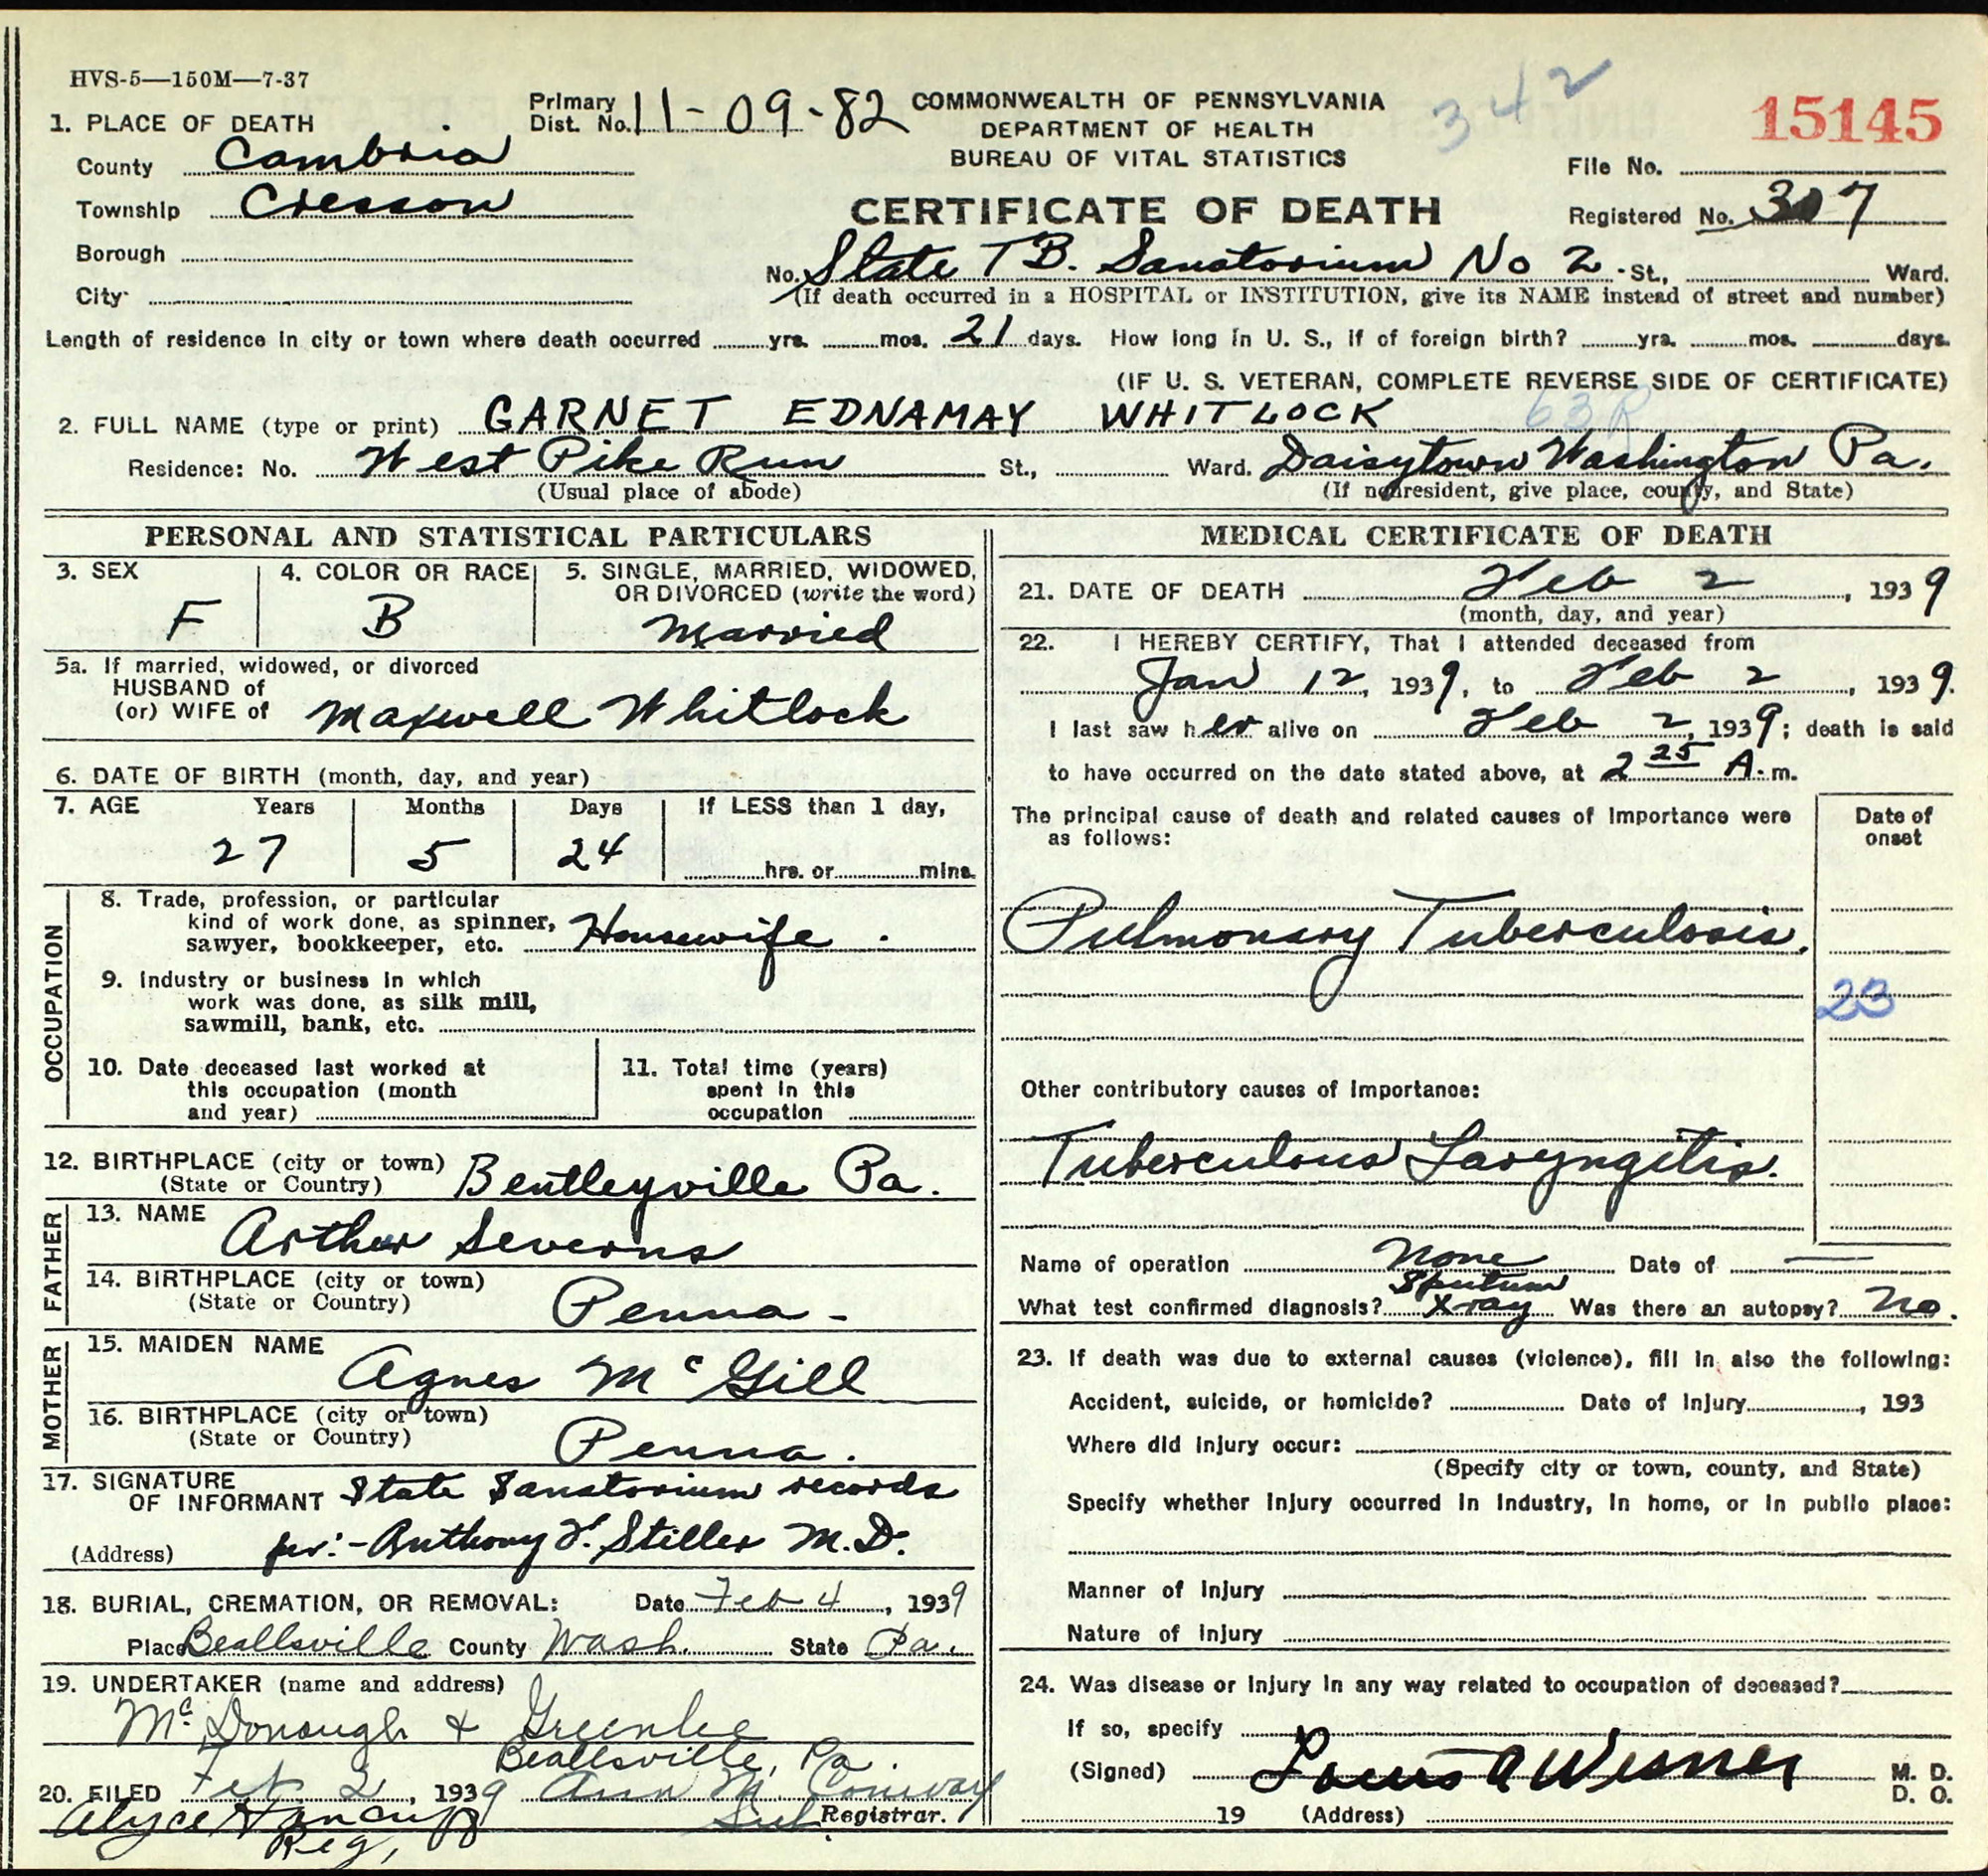 HVS-5—150M—7-37
342
15145
1. PLACE OF DEATH
Primary Dist. No. 11-09-82
COMMONWEALTH OF PENNSYLVANIA
DEPARTMENT OF HEALTH
BUREAU OF VITAL STATISTICS
County Cambria
File No.
Township Cresson
CERTIFICATE OF DEATH
Registered No. 307
Borough
No. State TB. Sanatorium No 2 St., Ward.
City
(If death occurred in a HOSPITAL or INSTITUTION, give its NAME instead of street and number)
Length of residence in city or town where death occurred yrs. mos. 21 days. How long in U. S., if of foreign birth? yrs. mos. days.
(IF U. S. VETERAN, COMPLETE REVERSE SIDE OF CERTIFICATE)
63R
2. FULL NAME (type or print) GARNET EDNAMAY WHITLOCK
Residence: No. West Pike Run St., Ward. Daisytown Washington Pa.
(Usual place of abode) (If nonresident, give place, county, and State)
PERSONAL AND STATISTICAL PARTICULARS
3. SEX
F
4. COLOR OR RACE
B
5. SINGLE, MARRIED, WIDOWED,
OR DIVORCED (write the word)
Married
5a. If married, widowed, or divorced
HUSBAND of
(or) WIFE of Maxwell Whitlock
6. DATE OF BIRTH (month, day, and year)
7. AGE Years Months Days If LESS than 1 day,
27 5 24 hrs. or mins.
OCCUPATION
8. Trade, profession, or particular
kind of work done, as spinner,
sawyer, bookkeeper, etc. Housewife.
9. Industry or business in which
work was done, as silk mill,
sawmill, bank, etc.
10. Date deceased last worked at
this occupation (month
and year)
11. Total time (years)
spent in this
occupation
12. BIRTHPLACE (city or town) Bentleyville Pa.
(State or Country)
FATHER
13. NAME
Arthur Severns
14. BIRTHPLACE (city or town)
(State or Country) Penna -
MOTHER
15. MAIDEN NAME
Agnes McGill
16. BIRTHPLACE (city or town)
(State or Country) Penna.
17. SIGNATURE
OF INFORMANT State Sanatorium records
(Address) per:- Anthony F. Stiller M.D.
18. BURIAL, CREMATION, OR REMOVAL: Date Feb 4, 1939
Place Beallsville County Wash. State Pa.
19. UNDERTAKER (name and address)
McDonough & Greenlee
Beallsville, Pa.
20. FILED Feb. 2, 1939 Ann M. Conway
Alyce Sub Registrar.
Reg,
MEDICAL CERTIFICATE OF DEATH
21. DATE OF DEATH Feb 2, 1939
(month, day, and year)
22. I HEREBY CERTIFY, That I attended deceased from
Jan 12, 1939, to Feb 2, 1939.
I last saw her alive on Feb 2, 1939; death is said
to have occurred on the date stated above, at 2 25 A.m.
The principal cause of death and related causes of importance were
as follows:
Date of
onset
Pulmonary Tuberculosis.
23
Other contributory causes of importance:
Tuberculous Laryngitis.
Name of operation None Date of —
Sputum
What test confirmed diagnosis? X-ray Was there an autopsy? No.
23. If death was due to external causes (violence), fill in also the following:
Accident, suicide, or homicide? Date of injury , 193
Where did injury occur:
(Specify city or town, county, and State)
Specify whether injury occurred in industry, in home, or in public place:
Manner of injury
Nature of injury
24. Was disease or injury in any way related to occupation of deceased?
If so, specify
(Signed) Louis A Wesner M. D.
D. O.
19 (Address)